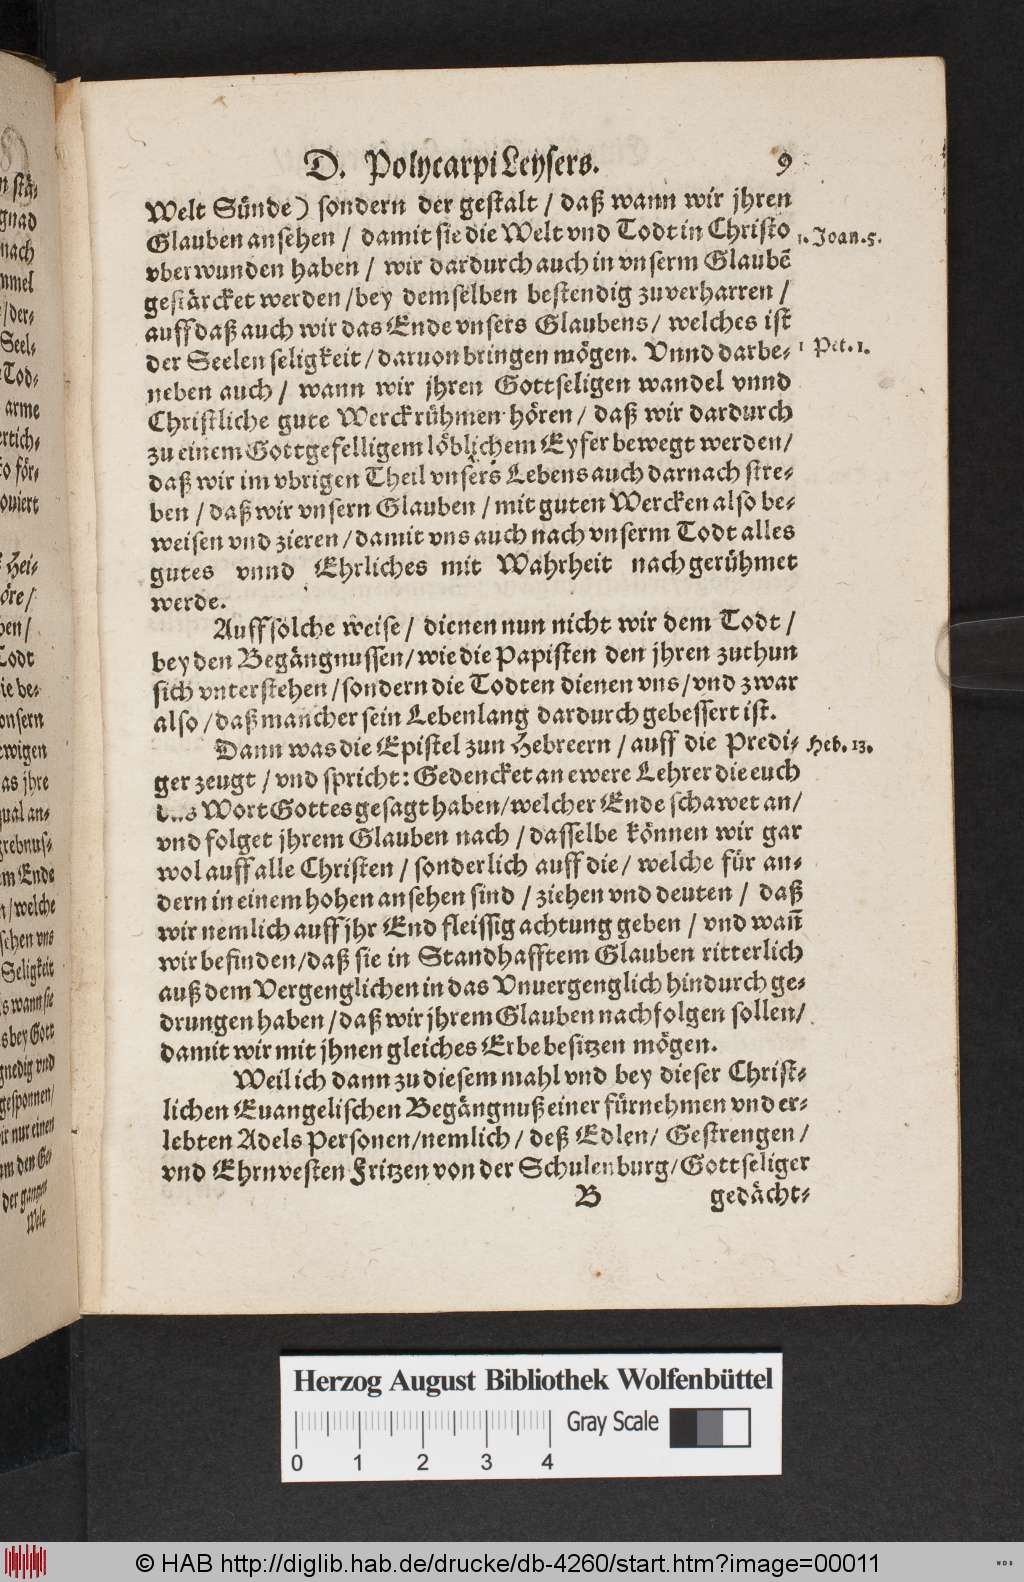 D. Polycarpi Leysers. 9
Welt Sünde) sondern der gestalt / daß wann wir jhren
Glauben ansehen / damit sie die Welt vnd Todt in Christo
1. Joan. 5.
vberwunden haben / wir dardurch auch in vnserm Glaubẽ
gestärcket werden / bey demselben bestendig zuverharren /
auff daß auch wir das Ende vnsers Glaubens / welches ist
der Seelen seligkeit / daruon bringen mögen. Vnnd darbe-
1 Pet. 1.
neben auch / wann wir jhren Gottseligen wandel vnnd
Christliche gute Werck rühmen hören / daß wir dardurch
zu einem Gottgefelligem löblichem Eyfer bewegt werden /
daß wir im vbrigen Theil vnsers Lebens auch darnach stre-
ben / daß wir vnsern Glauben / mit guten Wercken also be-
weisen vnd zieren / damit vns auch nach vnserm Todt alles
gutes vnnd Ehrliches mit Wahrheit nachgerühmet
werde.
Auff solche weise / dienen nun nicht wir dem Todt /
bey den Begängnussen / wie die Papisten den jhren zuthun
sich vnterstehen / sondern die Todten dienen vns / vnd zwar
also / daß mancher sein Lebenlang dardurch gebessert ist.
Dann was die Epistel zun Hebreern / auff die Predi-
Heb. 13.
ger zeugt / vnd spricht: Gedencket an ewere Lehrer die euch
das Wort Gottes gesagt haben / welcher Ende schawet an /
vnd folget jhrem Glauben nach / dasselbe können wir gar
wol auff alle Christen / sonderlich auff die / welche für an-
dern in einem hohen ansehen sind / ziehen vnd deuten / daß
wir nemlich auff jhr End fleissig achtung geben / vnd wañ
wir befinden / daß sie in Standhafftem Glauben ritterlich
auß dem Vergenglichen in das Vnuergenglich hindurch ge-
drungen haben / daß wir jhrem Glauben nachfolgen sollen /
damit wir mit jhnen gleiches Erbe besitzen mögen.
Weil ich dann zu diesem mahl vnd bey dieser Christ-
lichen Euangelischen Begängnuß einer fürnehmen vnd er-
lebten Adels Personen / nemlich / deß Edlen / Gestrengen /
vnd Ehrnvesten Fritzen von der Schulenburg / Gottseliger
B gedächt-
Herzog August Bibliothek Wolfenbüttel
Gray Scale
0 1 2 3 4
© HAB http://diglib.hab.de/drucke/db-4260/start.htm?image=00011